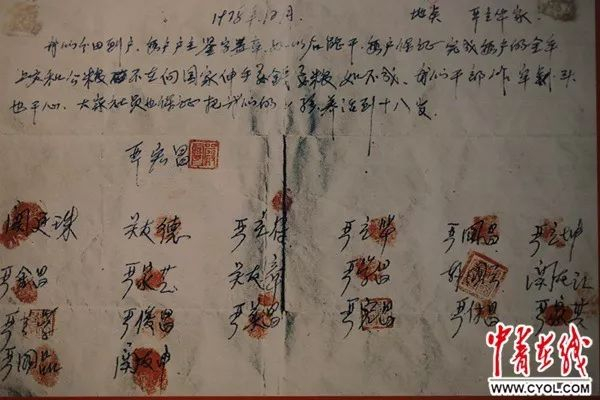 1978年12月 地点 严立华家
我们分田到户，每户户主签字盖章，如以后能干，每户保证完成每户的全年
上交和公粮 不在向国家伸手要钱要粮 如不成，我们干部作牢刹头
也干心，大家社员也保证把我们的小孩养活到十八岁。
严宏昌
关廷珠 关友德 严立符 严立华 严国昌 严立坤
严金昌 严家芝 关友章 严学昌 韩国云 关友江
严立学 严俊昌 严美昌 严宏昌 严付昌 严家其
严国品 关友申
中青在线
WWW.CYOL.COM